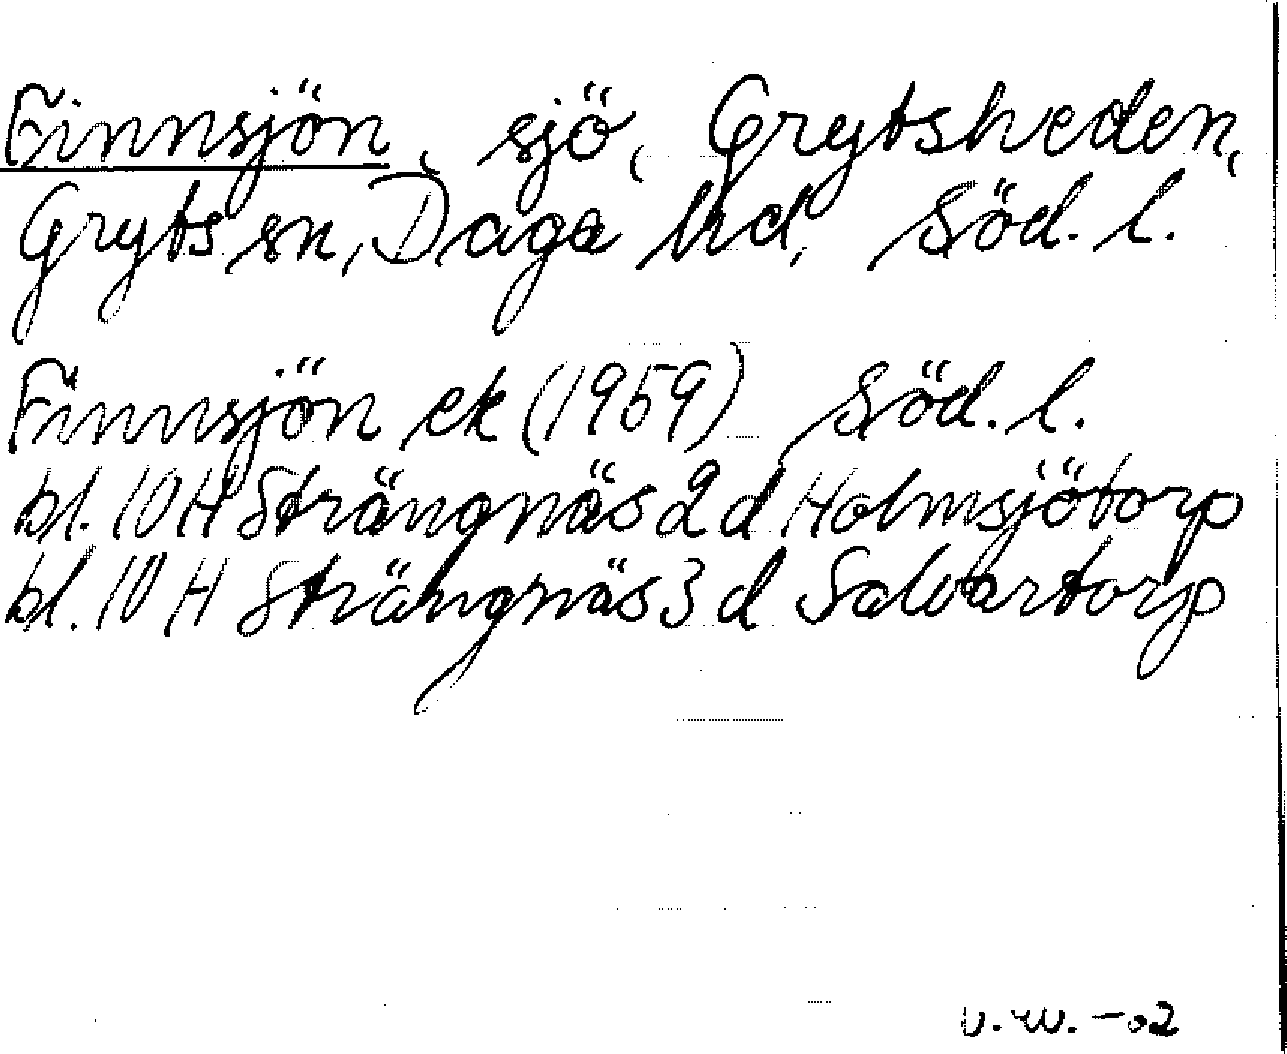 Finnsjön, sjö, Grytsheden,
Gryts sn, Daga hd, Söd. l.
Finnsjön ek (1959) Söd. l.
bl. 10 H Strängnäs 2 d Holmsjötorp
bl. 10 H Strängnäs 3 d Salvartorp
v.w. -02